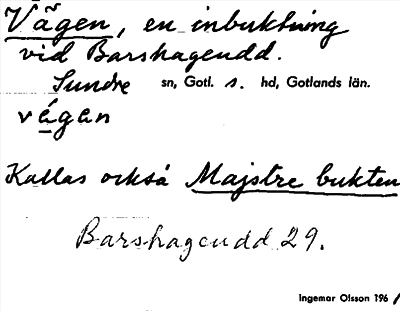 Vågen, en inbuktning
vid Barshageudd.
Sundre sn, Gotl. s. hd, Gotlands län.
vágan
Kallas också Majstre bukten
Barshageudd 29.
Ingemar Olsson 196